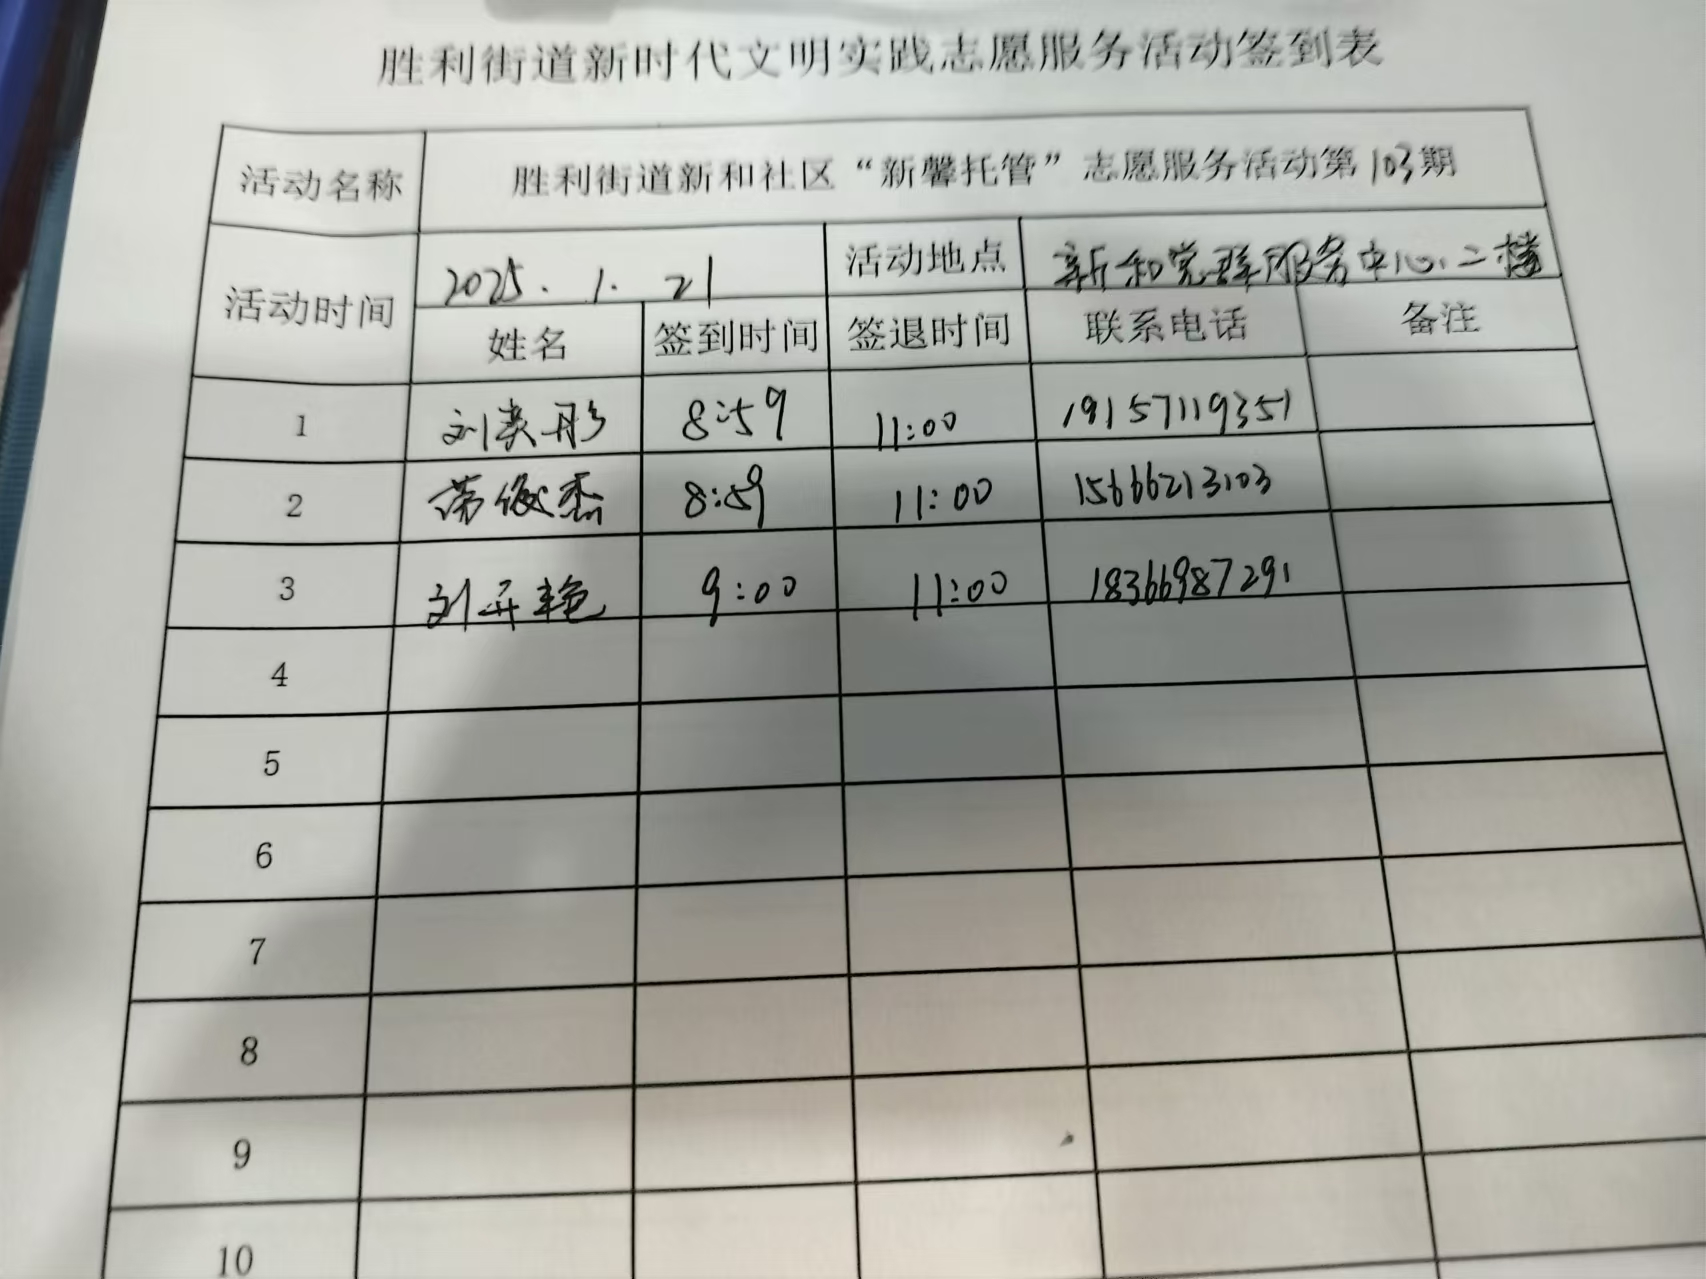 胜利街道新时代文明实践志愿服务活动签到表
活动名称 胜利街道新和社区“新馨托管”志愿服务活动第103期
活动时间 2025.1.21 活动地点 新和党群服务中心二楼
姓名 签到时间 签退时间 联系电话 备注
1 刘英彤 8:59 11:00 19157119351
2 俊杰 8:59 11:00 15666213103
3 刘艳 9:00 11:00 18366987291
4
5
6
7
8
9
10